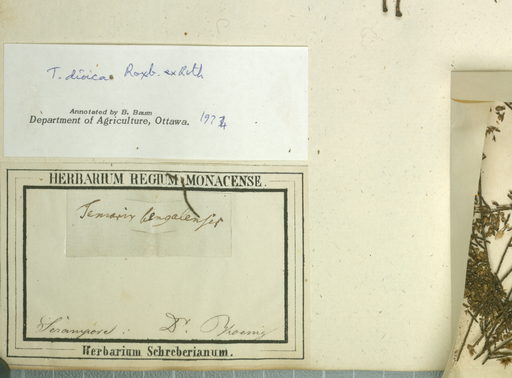 T. dioica Roxb. ex Roth
Annotated by B. Baum
Department of Agriculture, Ottawa. 1974
HERBARIUM REGIUM MONACENSE.
Tamarix bengalensis
Serampore: Dr.
Herbarium Schreberianum.